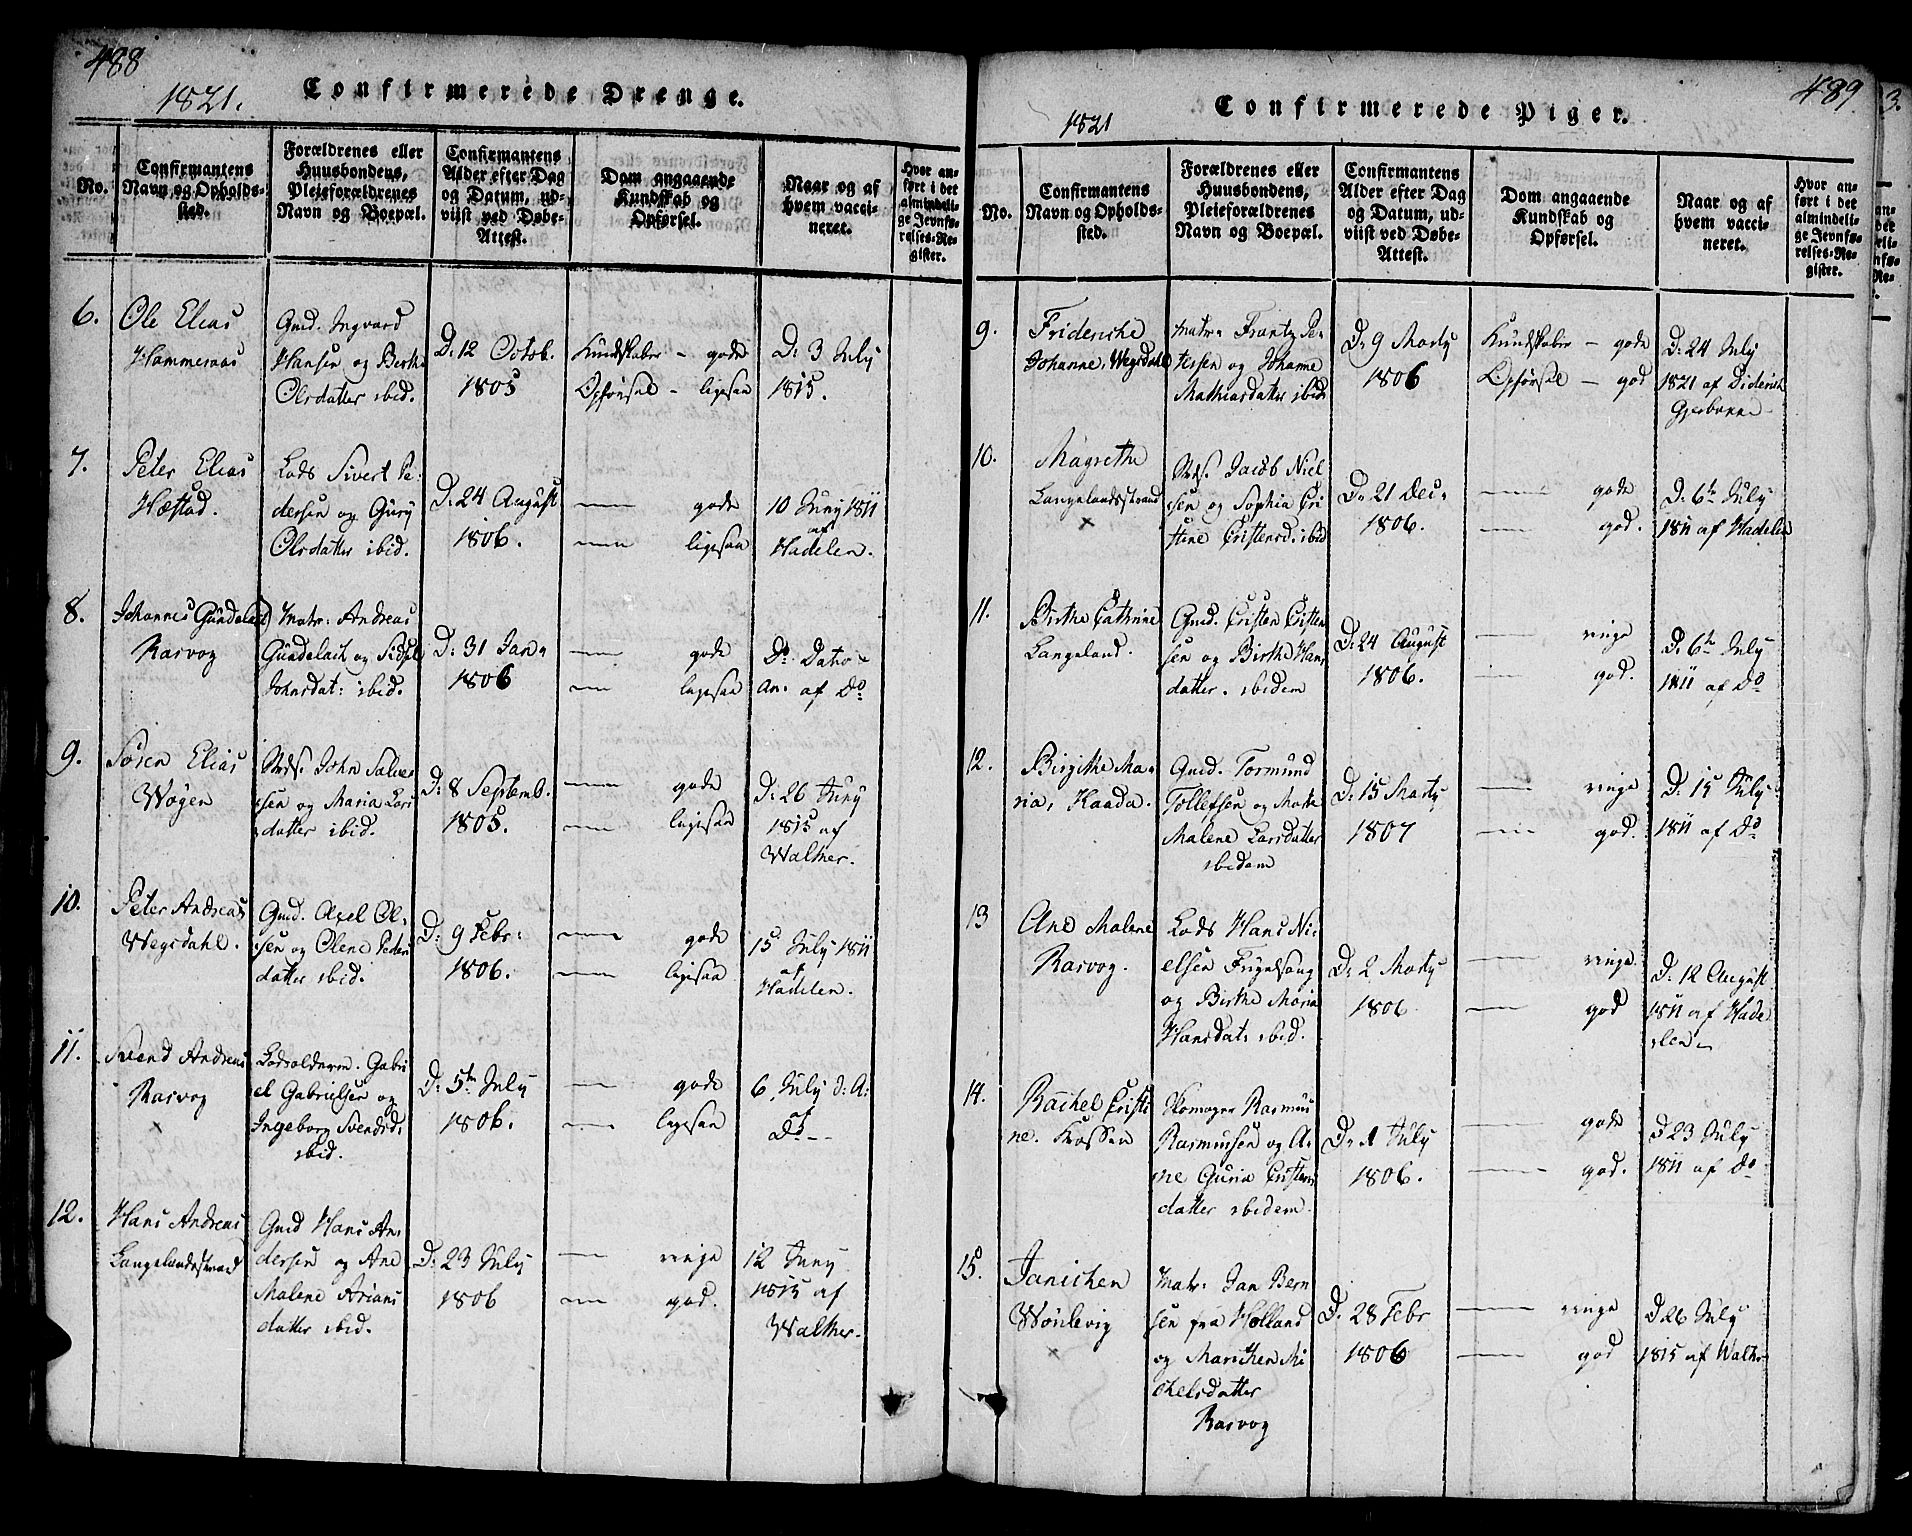 488
1821.
Confirmerede Drenge.
No.
Confirmantens
Navn og Opholds-
sted.
Forældrenes eller
Huusbondens,
Pleieforældrenes
Navn og Boepæl.
Confirmantens
Alder efter Dag
og Datum, ud-
viist ved Døbe-
Attest.
Dom angaaende
Kundskab og
Opførsel.
Naar og af
hvem vacci-
neret.
Hvor an-
ført i det
almindeli-
ge Jevnfø-
relses-Re-
gister.
6.
Ole Elias
Hammeraas
Gmd. Ingvard
Hansen og Birthe
Olsdatter ibid.
D: 12 Octob.
1805
Kundskaber - gode
Opførsel - ligesaa
D: 3 July
1815.
7.
Peter Elias
Hæstad.
Lods Sivert Pe-
dersen og Gury
Olsdatter ibid.
D: 24 August
1806.
gode
ligesaa
10 Juny 1811
af
Hadelen.
8.
Johannes Gundelach
Rasvog
Matr: Andreas
Gundelach og Sidsel
Johnsdat: ibid.
D: 31 Jan.
1806
gode
ligesaa
Do Dato
An. af Do
9.
Søren Elias
Wogen
Hds. John Salve-
sen og Maria Lars
datter ibid.
D: 8 Septemb.
1805.
gode
ligesaa
D: 26 Juny
1815 af
Walther.
10.
Peter Andreas
Wegsdahl.
Gmd. Axel Ol-
sen og Olene Peders
datter ibid.
D: 9 Febr:
1806.
gode
ligesaa
15 July 1811
af
Hadelen.
11.
Svend Andreas
Rasvog
Lodsolderm. Gabri
el Gabrielsen og
Ingeborg Svendsd:
ibid.
D: 5te July
1806.
gode
ligesaa
6. July d: A:
af
Do
12.
Hans Andreas
Langelandsstrand
Gmd Hans An-
dersen og Ane
Malene Arians
datter ibid.
D: 23 July
1806
ringe
god.
12 Juny
1815 af
Walther.
489
1821
Confirmerede Piger.
No.
Confirmantens
Navn og Opholds-
sted.
Forældrenes eller
Huusbondens,
Pleieforældrenes
Navn og Boepæl.
Confirmantens
Alder efter Dag
og Datum, ud-
viist ved Døbe-
Attest.
Dom angaaende
Kundskab og
Opførsel.
Naar og af
hvem vacci-
neret.
Hvor an-
ført i det
almindeli-
ge Jevnfø-
relses-Re-
gister.
9.
Frideriche
Johanne, Wegsdahl
Matr: Frantz Pe-
tersen og Johanne
Mathiasdatter ibid
D: 9 Marty
1806
Kundskaber - gode
Opførsel - god
D: 24 July
1821 af Diderich
10.
Magrethe
Langelandsstrand
Hds. Jacob Niel
sen og Sophia Cri
stine Cristensd. ibid
D: 21 Dec.
1806.
gode
god.
D: 6te July
1811 af Hadelen
11.
Birthe Cathrine
Langeland.
Gmd. Cristen Cristen
sen og Birthe Hans
datter. ibidem
D: 24 August
1806.
ringe
god.
D: 6te July
1811 af Do
12.
Birgithe Ma-
ria, Kaada.
Gmd. Tormund
Tollefsen og Marte
Malene Larsdatter
ibidem
D: 15 Marty
1807
ringe
god.
D: 15 July
1811 af Do
13
Ane Malene
Rasvog.
Lods Hans Ni-
elsen Fugelsang
og Birthe Maria
Hansdat: ibid.
D: 2 Marty
1806
ringe
god
D: 12 August
1811 af Hade
len
14.
Rachel Cristi
ne. Krossen
Skomager Rasmus
Rasmussen og A-
ne Guria Cristens
datter ibidem
D: 1 July
1806.
gode
god.
D 23 July
1811 af Do
15.
Janichen
Wønlevig
Matr: Jan Bern
sen fra Holland
og Marichen Mi
chelsdatter
Rasvog
D: 28 Febr
1806
ringe
god
D 26 July
1815 af Walther
3.